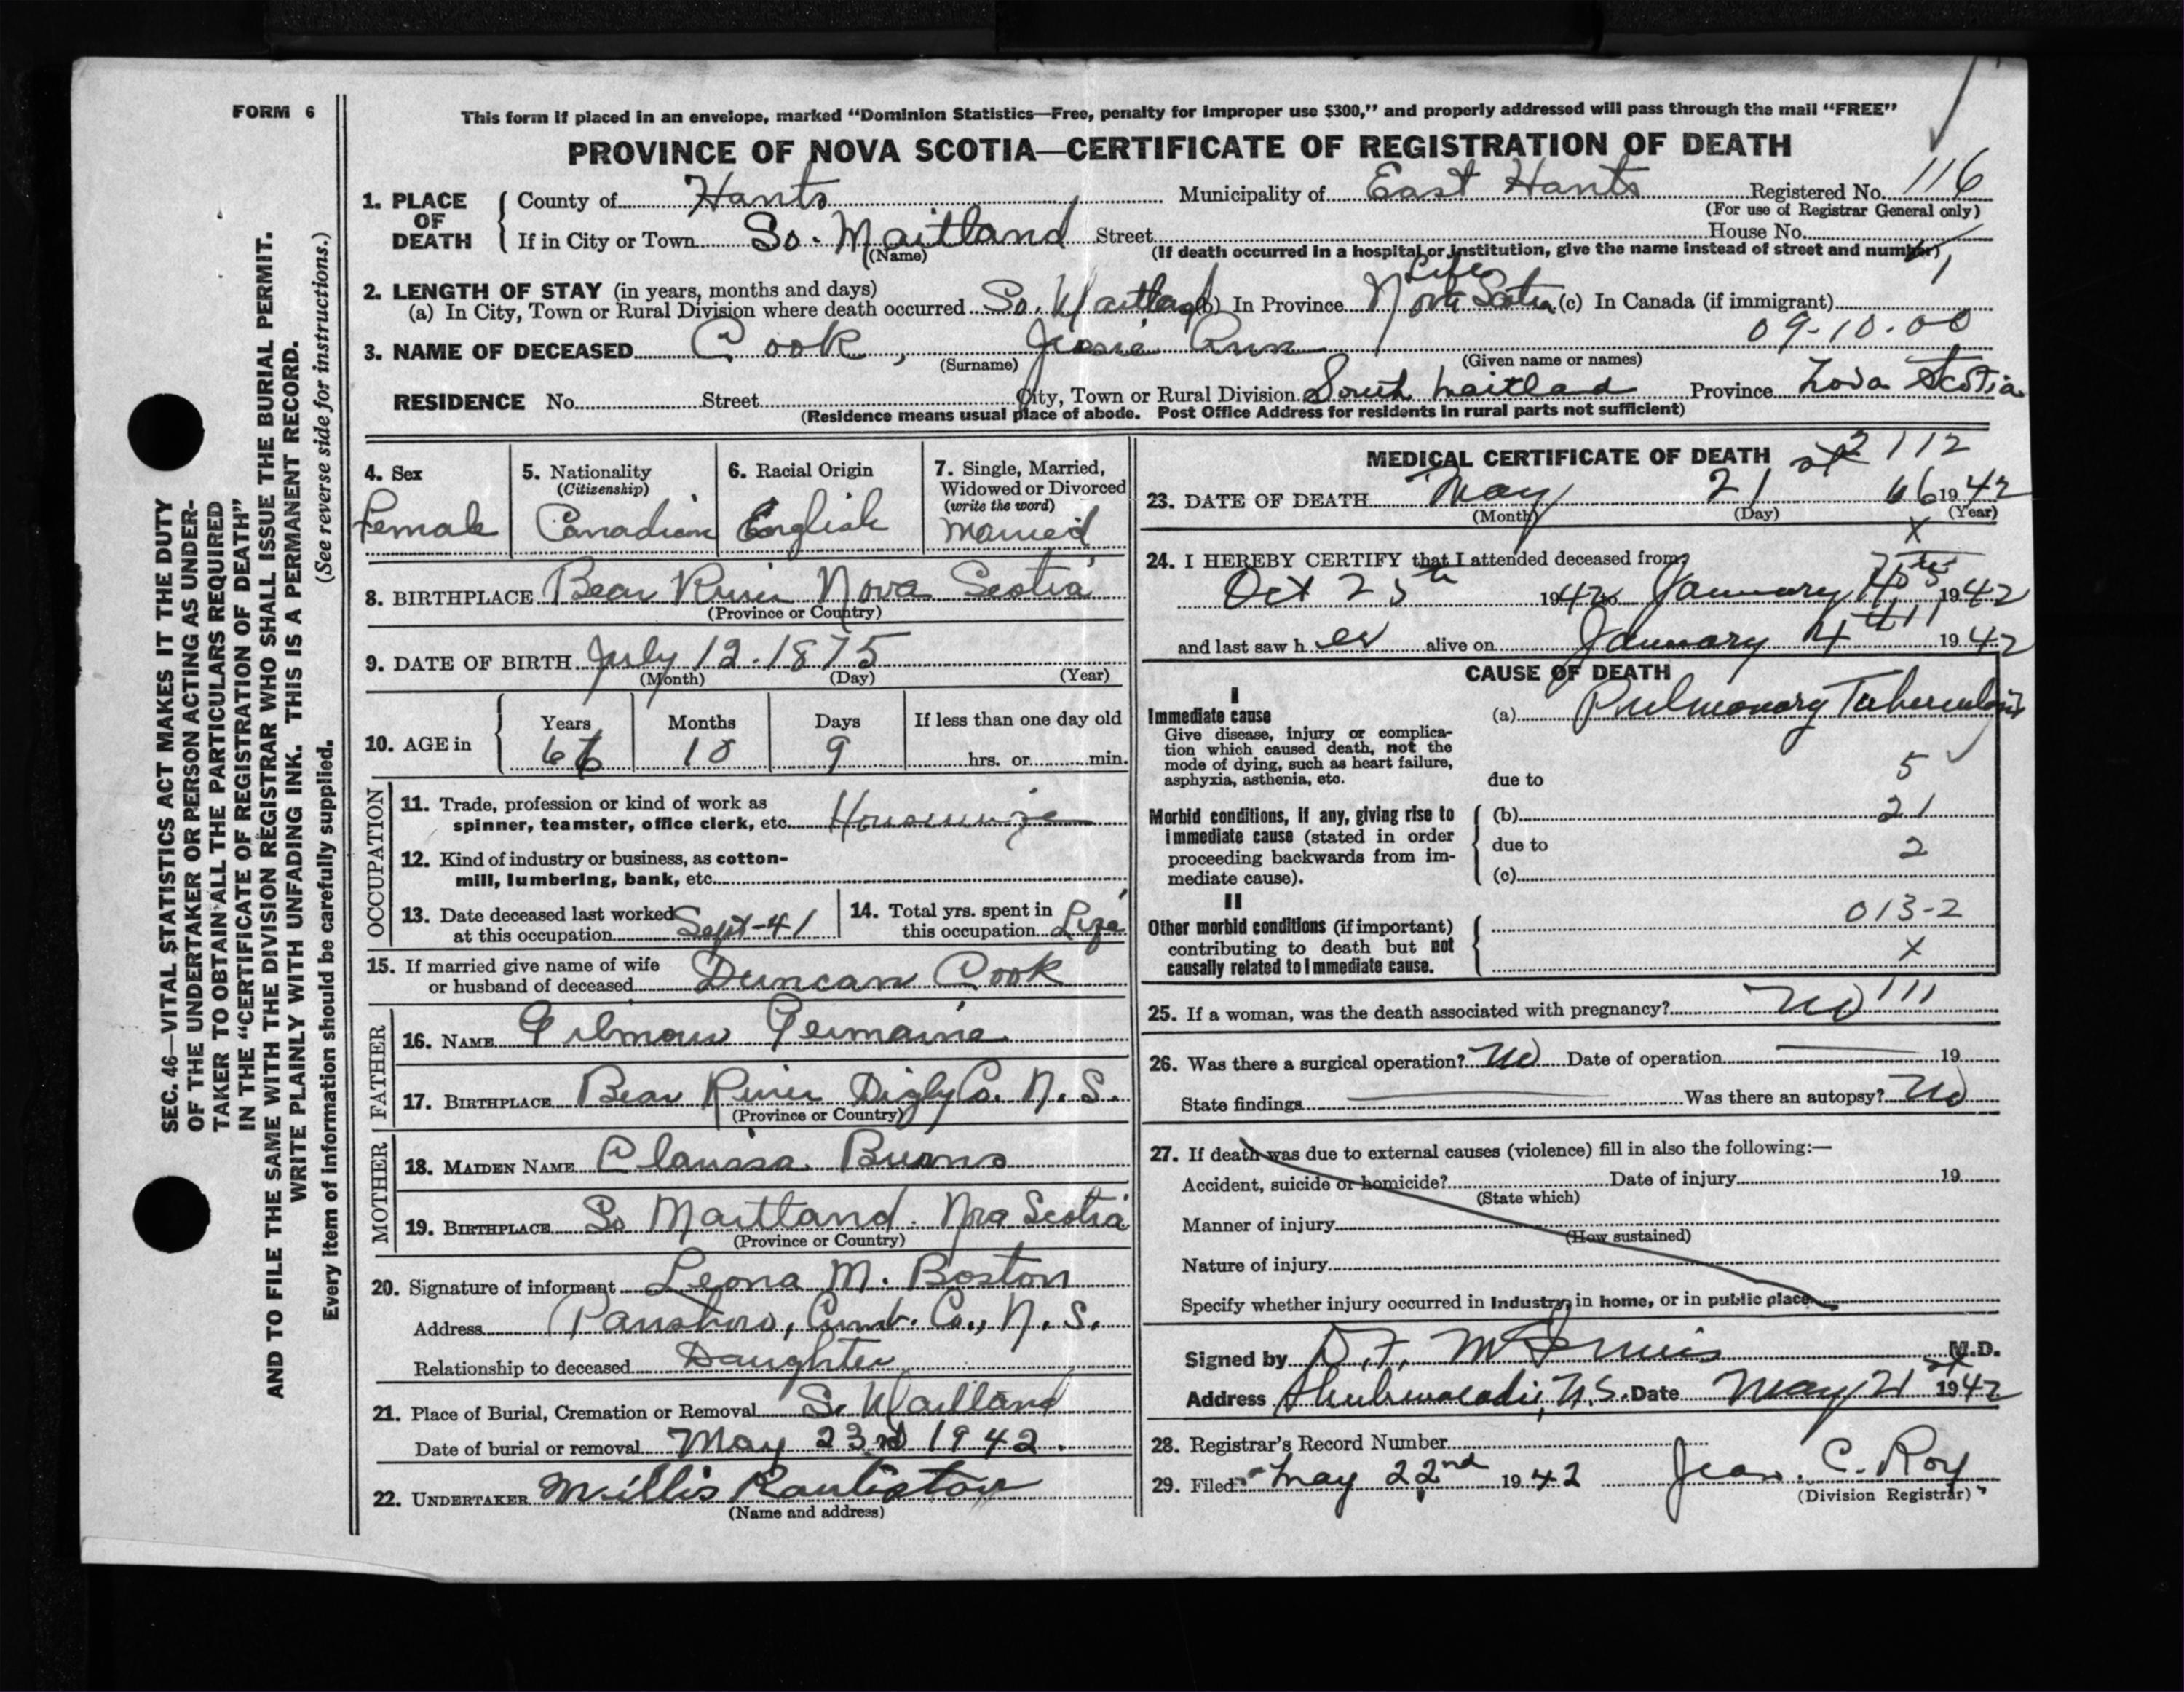 FORM 6
This form if placed in an envelope, marked "Dominion Statistics—Free, penalty for improper use $300," and properly addressed will pass through the mail "FREE"
PROVINCE OF NOVA SCOTIA—CERTIFICATE OF REGISTRATION OF DEATH
1. PLACE OF DEATH
County of Hants Municipality of East Hants Registered No. 116
(For use of Registrar General only)
If in City or Town So. Maitland Street House No.
(Name) (If death occurred in a hospital or institution, give the name instead of street and number)
2. LENGTH OF STAY (in years, months and days) Life
(a) In City, Town or Rural Division where death occurred So. Maitland (b) In Province Nova Scotia (c) In Canada (if immigrant)
09-10-00
3. NAME OF DECEASED Cook, Jessie Ann
(Surname) (Given name or names)
RESIDENCE No. Street City, Town or Rural Division South Maitlad Province Nova Scotia
(Residence means usual place of abode. Post Office Address for residents in rural parts not sufficient)
SEC. 46—VITAL STATISTICS ACT MAKES IT THE DUTY
OF THE UNDERTAKER OR PERSON ACTING AS UNDER-
TAKER TO OBTAIN ALL THE PARTICULARS REQUIRED
IN THE "CERTIFICATE OF REGISTRATION OF DEATH"
AND TO FILE THE SAME WITH THE DIVISION REGISTRAR WHO SHALL ISSUE THE BURIAL PERMIT.
WRITE PLAINLY WITH UNFADING INK. THIS IS A PERMANENT RECORD.
Every item of information should be carefully supplied. (See reverse side for instructions.)
4. Sex Female
5. Nationality (Citizenship) Canadian
6. Racial Origin English
7. Single, Married, Widowed or Divorced (write the word) Married
8. BIRTHPLACE Bear River Nova Scotia
(Province or Country)
9. DATE OF BIRTH July 12. 1875
(Month) (Day) (Year)
10. AGE in Years 66 Months 10 Days 9 If less than one day old hrs. or min.
OCCUPATION
11. Trade, profession or kind of work as
spinner, teamster, office clerk, etc. Housewife
12. Kind of industry or business, as cotton-
mill, lumbering, bank, etc.
13. Date deceased last worked at this occupation Sept-41
14. Total yrs. spent in this occupation Life
15. If married give name of wife
or husband of deceased Duncan Cook
FATHER
16. NAME Gilmour Germaine
17. BIRTHPLACE Bear River Digby Co. N.S.
(Province or Country)
MOTHER
18. MAIDEN NAME Clarissa Burns
19. BIRTHPLACE So Maitland. Nova Scotia
(Province or Country)
20. Signature of informant Leona M. Boston
Address Parrsboro, Cumb. Co., N.S.
Relationship to deceased Daughter
21. Place of Burial, Cremation or Removal S. Maitland
Date of burial or removal May 23rd 1942.
22. UNDERTAKER Millis
(Name and address)
MEDICAL CERTIFICATE OF DEATH 2112
23. DATE OF DEATH May 21st 66 1942
(Month) (Day) (Year)
X
24. I HEREBY CERTIFY that I attended deceased from
Oct 25th 1942 to January 1942
and last saw her alive on January 4th 1942
CAUSE OF DEATH
I
Immediate cause (a) Pulmonary Tuberculosis
Give disease, injury or complica-
tion which caused death, not the
mode of dying, such as heart failure,
asphyxia, asthenia, etc. due to 5
Morbid conditions, if any, giving rise to (b) 21
immediate cause (stated in order due to 2
proceeding backwards from im-
mediate cause). (c)
II
013-2
Other morbid conditions (if important)
contributing to death but not
causally related to immediate cause. X
25. If a woman, was the death associated with pregnancy? No 111
26. Was there a surgical operation? No Date of operation 19
State findings Was there an autopsy? No
27. If death was due to external causes (violence) fill in also the following:—
Accident, suicide or homicide? Date of injury 19
(State which)
Manner of injury
(How sustained)
Nature of injury
Specify whether injury occurred in industry, in home, or in public place
Signed by D.F. M.D.
Address Shubenacadie, N.S. Date May 21st 1942
28. Registrar's Record Number
29. Filed May 22nd 1942 Jean. C. Roy
(Division Registrar)